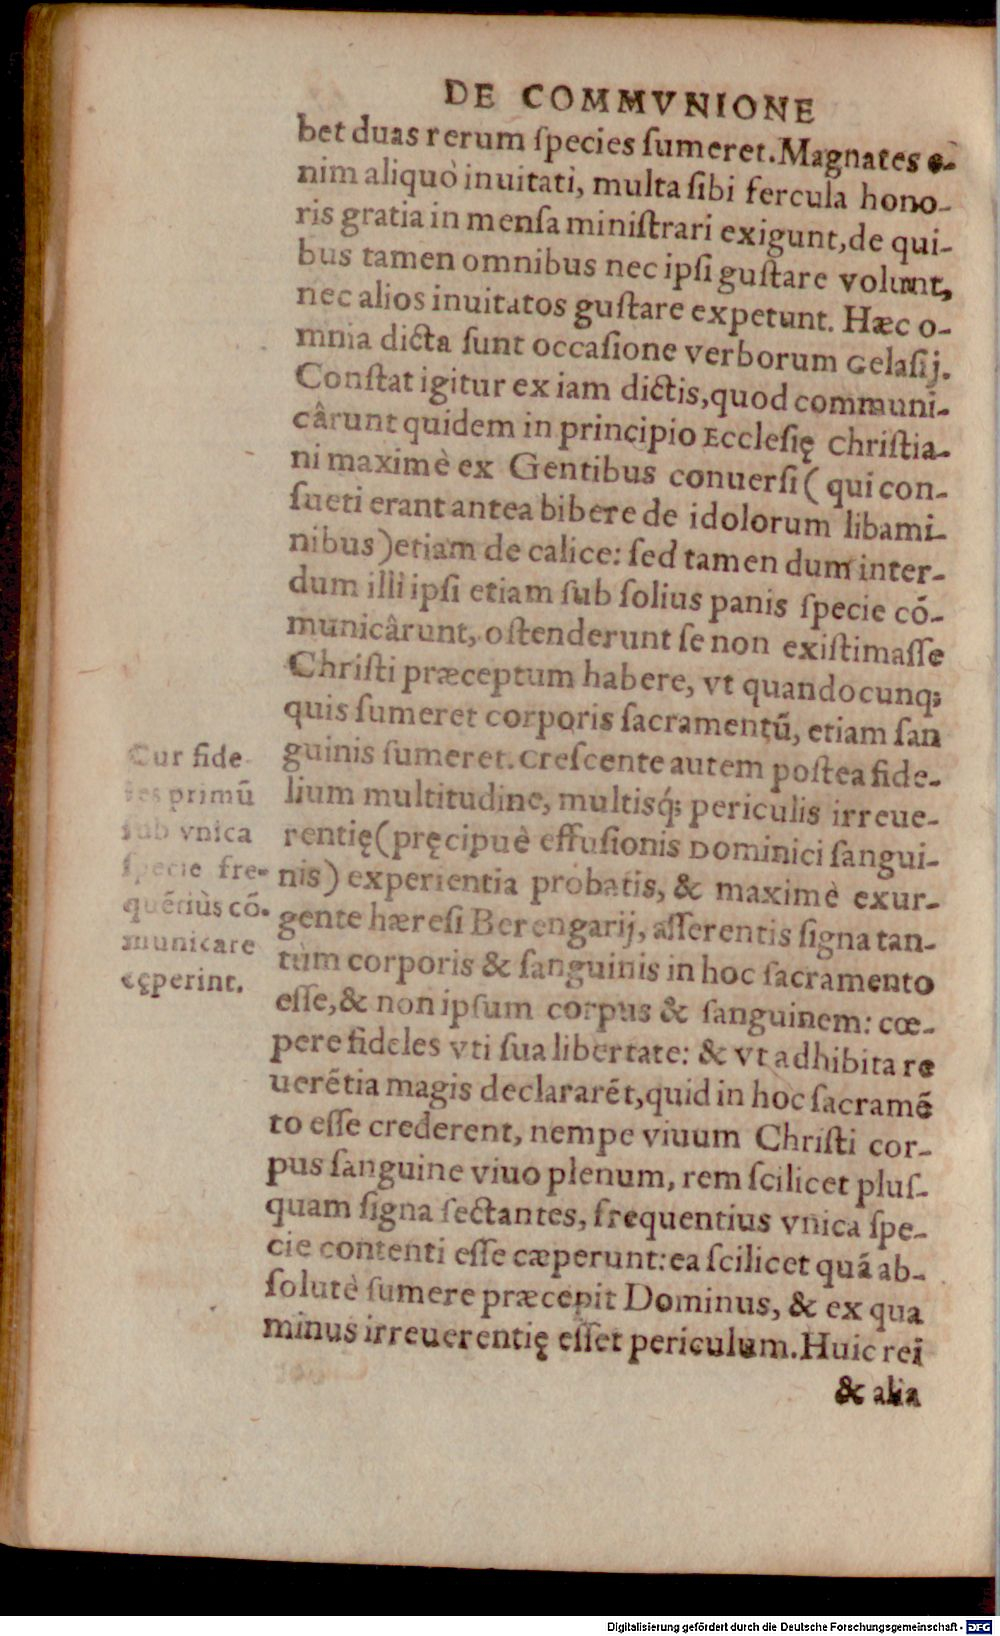 DE COMMVNIONE
bet duas rerum ſpecies ſumeret. Magnates e-
nim aliquò inuitati, multa ſibi fercula hono-
ris gratia in menſa miniſtrari exigunt, de qui-
bus tamen omnibus nec ipſi guſtare volunt,
nec alios inuitatos guſtare expetunt. Hæc o-
mnia dicta ſunt occaſione verborum Gelaſij.
Conſtat igitur ex iam dictis, quod communi-
cârunt quidem in principio Eccleſię Chriſtia-
ni maximè ex Gentibus conuerſi (qui con-
ſueti erant antea bibere de idolorum libami-
nibus) etiam de calice: ſed tamen dum inter-
dum illi ipſi etiam ſub ſolius panis ſpecie cō-
municârunt, oſtenderunt ſe non exiſtimaſſe
Chriſti præceptum habere, vt quandocunq;
quis ſumeret corporis ſacramentū, etiam ſan
guinis ſumeret. Creſcente autem poſtea fide-
lium multitudine, multisq́; periculis irreue-
rentię (pręcipuè effuſionis Dominici ſangui-
nis) experientia probatis, & maximè exur-
gente hæreſi Berengarij, aſſerentis ſigna tan-
tùm corporis & ſanguinis in hoc ſacramento
eſſe, & non ipſum corpus & ſanguinem: cœ-
pere fideles vti ſua libertate: & vt adhibita re
uerētia magis declararēt, quid in hoc ſacramē
to eſſe crederent, nempe viuum Chriſti cor-
pus ſanguine viuo plenum, rem ſcilicet pluſ-
quam ſigna ſectantes, frequentius vnica ſpe-
cie contenti eſſe cæperunt: ea ſcilicet quā ab-
ſolutè ſumere præcepit Dominus, & ex qua
minus irreuerentię eſſet periculum. Huic rei
& alia
Cur fide
les primū
ſub vnica
ſpecie fre-
quētiùs cō-
municare
cęperint.
Digitalisierung gefördert durch die Deutsche Forschungsgemeinschaft - DFG